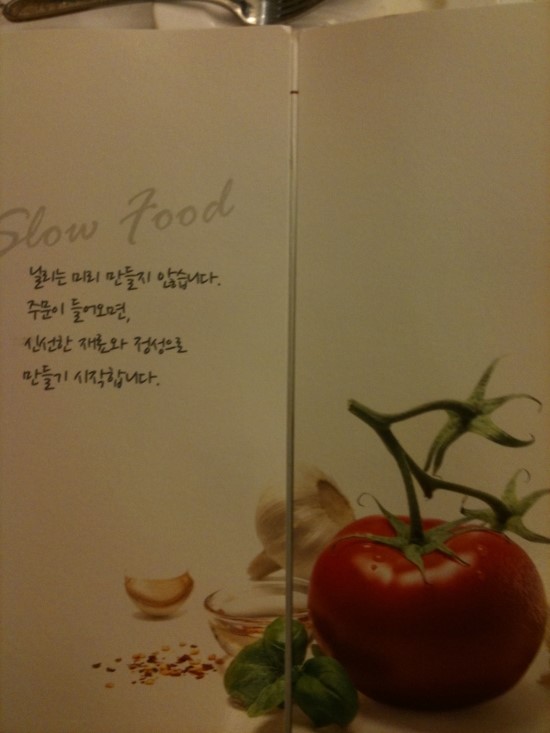 Slow Food
닐리는 미리 만들지 않습니다.
주문이 들어오면,
신선한 재료와 정성으로
만들기 시작합니다.